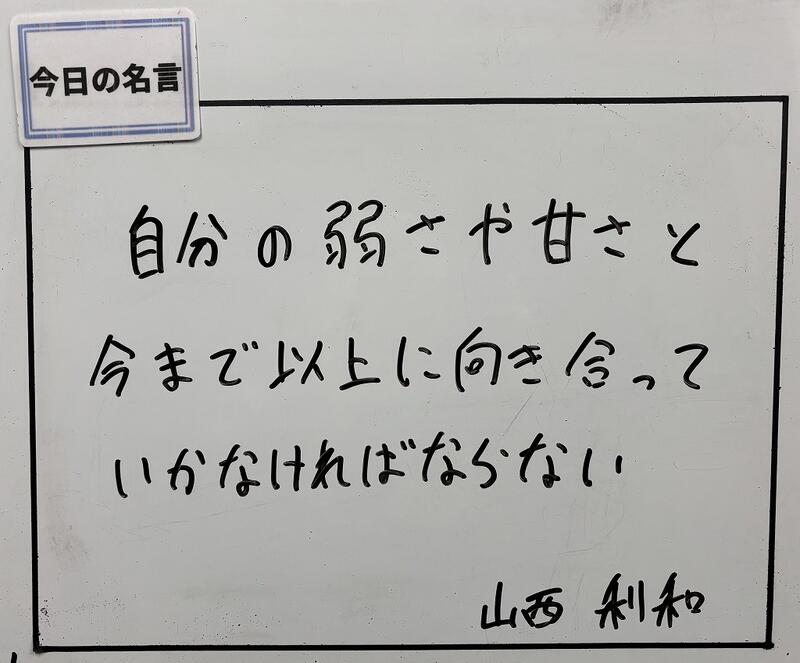 今日の名言
自分の弱さや甘さと
今まで以上に向き合って
いかなければならない
山西 利和